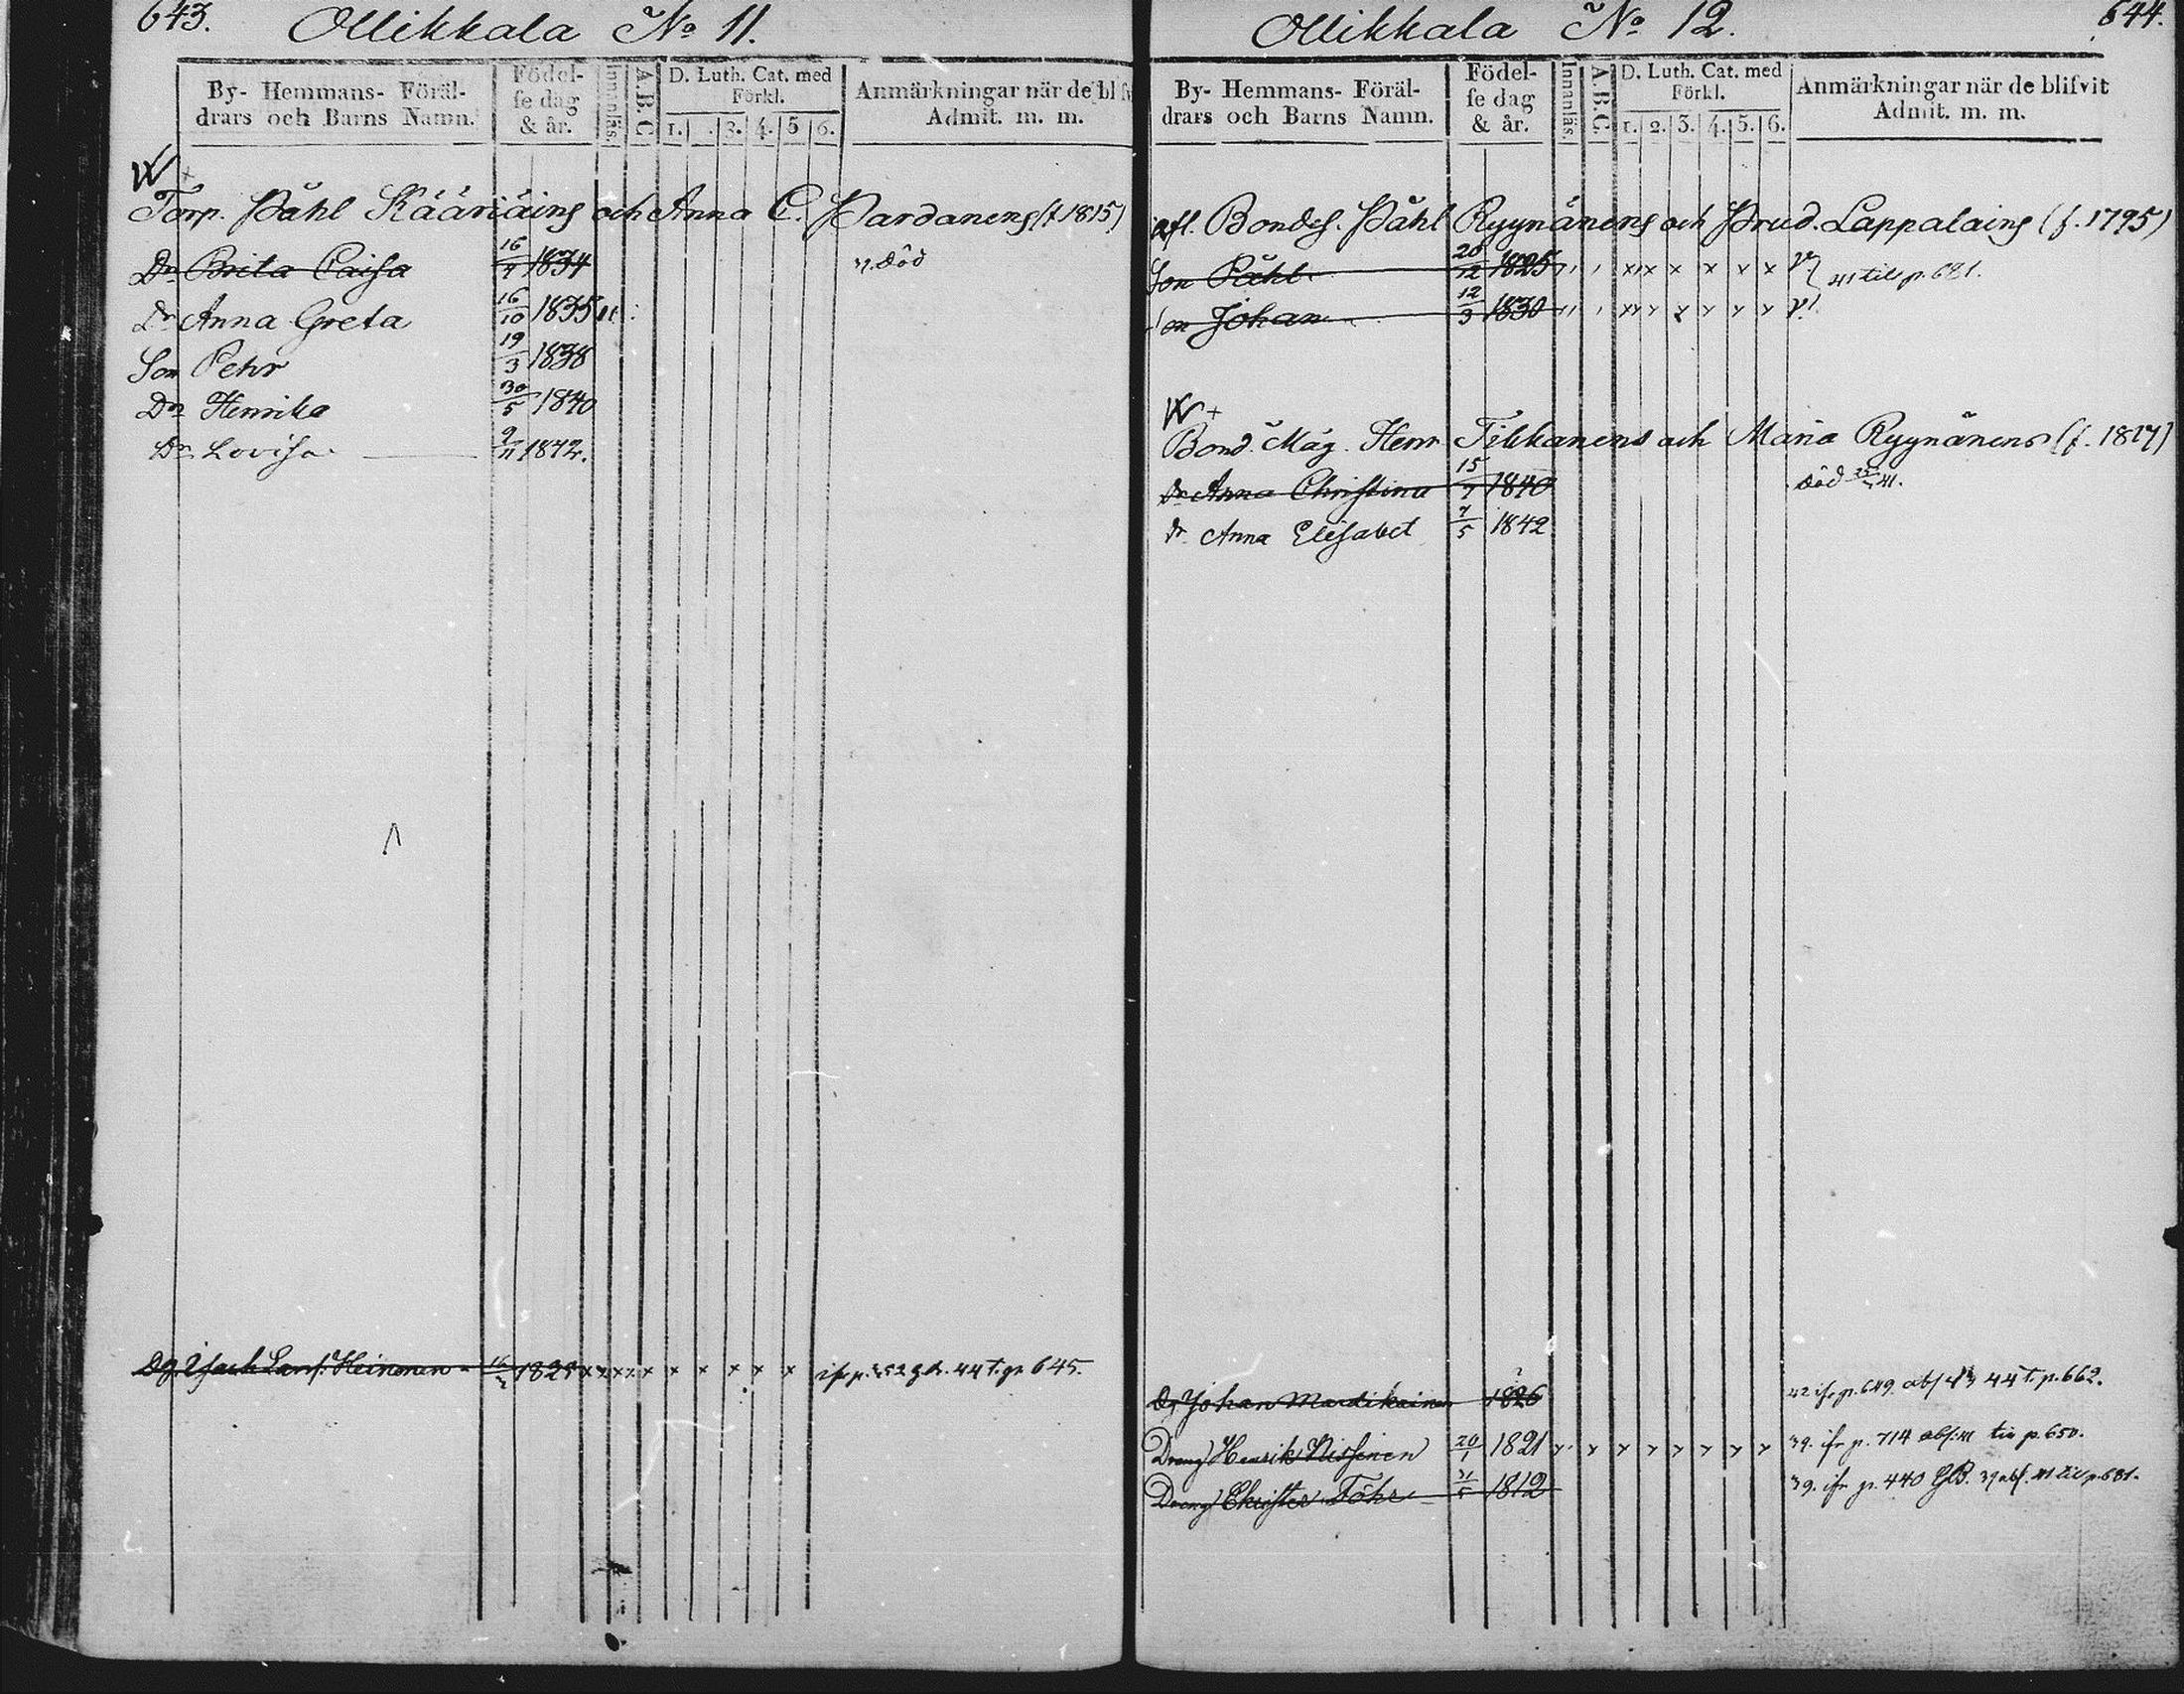 643.
Ollikkala No 11.
By- Hemmans- Föräl-
drars och Barns Namn.
Födel-
se dag
& år.
Innanläs.
A.B.C
D. Luth. Cat. med
Förkl.
1. . 3. 4. 5 6.
Anmärkningar när de bl
Admit. m. m.
Torp. Påhl Kääriäins och Anna C. Pardanens (f 1815)
Dr Brita Caisa 16/7 1834 død
Dr Anna Greta 16/10 1835
Son Pehr 19/3 1838
Dr Henrika 30/5 1840
Dr Lovisa 9/11 1842.
Dg Isack Heinonen 1825 x x x x x x x x x x 44 t. p. 645.
Ollikkala No 12.
644.
By- Hemmans- Föräl-
drars och Barns Namn.
Födel-
se dag
& år.
Innanläs.
A.B.C.
D. Luth. Cat. med
Förkl.
1. 2. 3. 4. 5. 6.
Anmärkningar när de blifvit
Admit. m. m.
afl. Bondes. Påhl Ryynänens och Prud. Lappalains (f. 1795)
Son Påhl 20/12 1825 x x x x x x x 41 till p. 681.
Son Johan 12/3 1830
Bond. Måg. Henr Tikkanens och Maria Ryynänens (f. 1817)
Dr Anna Christina 15/7 1840 död 41.
dr. Anna Elisabet 7/5 1842
Dg Johan Mardikainen 1826 42 ifr p. 649. 44 t. p. 662.
Dreng Henrik Nissinen 20/1 1821 39. ifr p. 714 abs. 41 till p. 650.
Dreng Christer Föhr 31/5 1812 39. ifr p. 440 41 till p. 681.